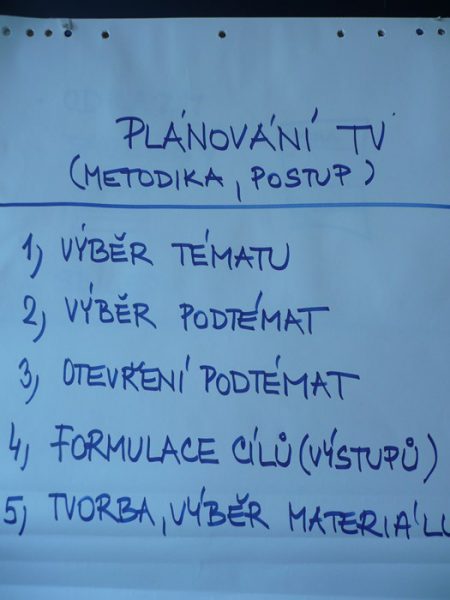 PLÁNOVÁNÍ TV
(METODIKA, POSTUP)
1, VÝBĚR TÉMATU
2, VÝBĚR PODTÉMAT
3, OTEVŘENÍ PODTÉMAT
4, FORMULACE CÍLŮ (VÝSTUPŮ)
5, TVORBA, VÝBĚR MATERIÁLU